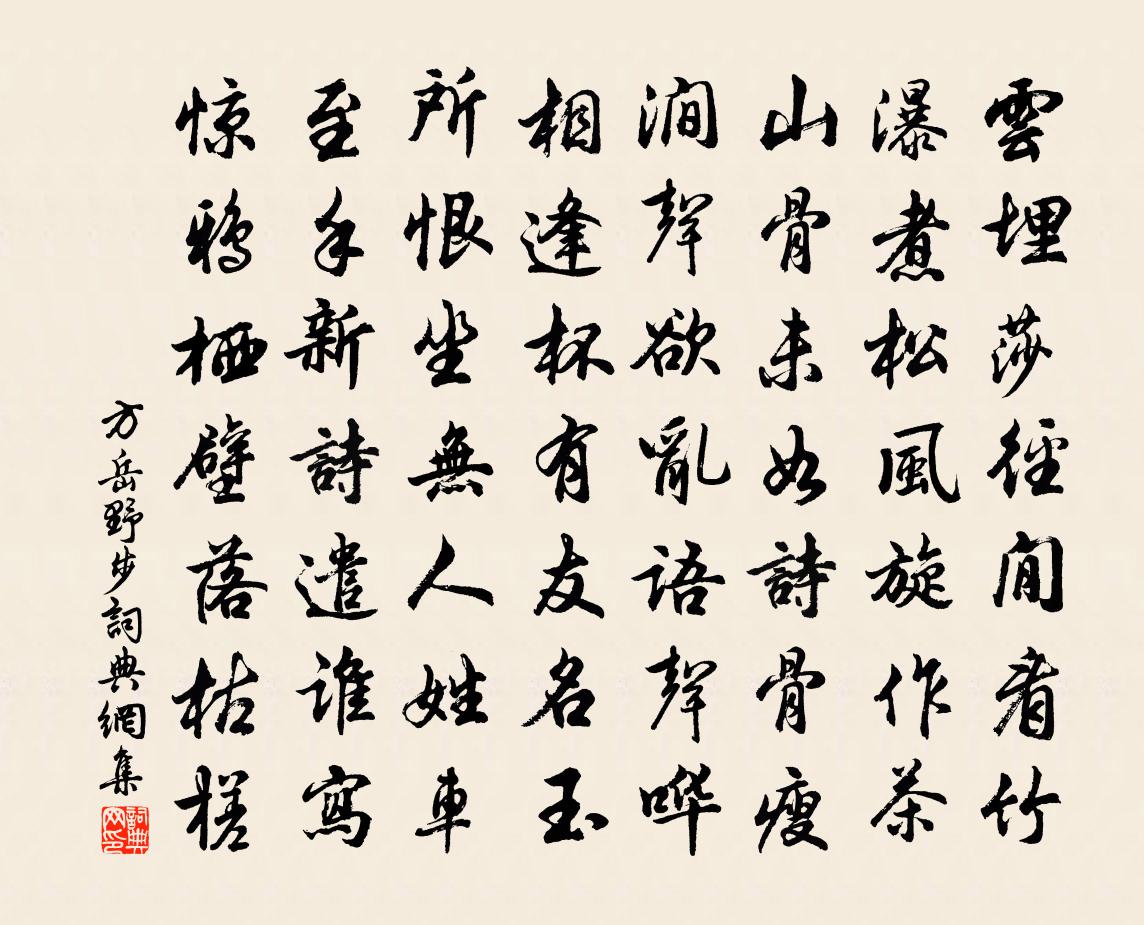 雲埋莎徑閒看竹
瀑煮松風旋作茶
山骨未如詩骨瘦
澗聲欲亂語聲嘩
相逢杯有友名玉
所恨坐無人姓車
至手新詩遣誰寫
惊鴉栖壁落枯槎
方岳野步詞典網集
詞典网印